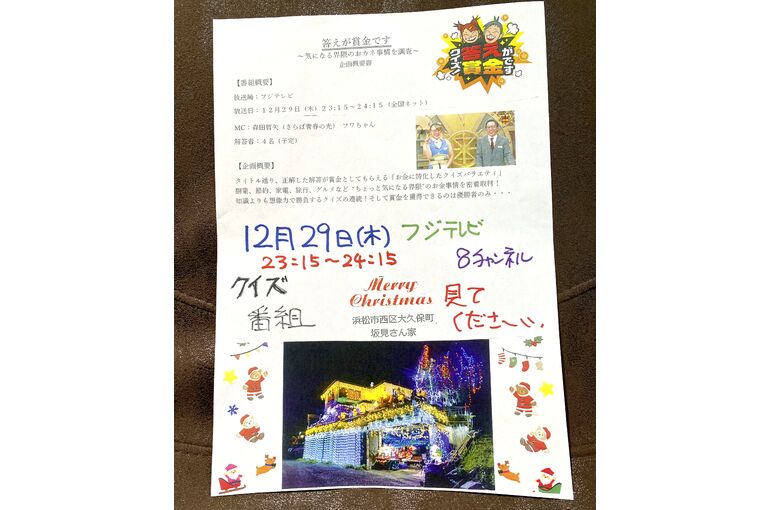 答えが賞金です
～気になる界隈のおカネ事情を調査～
企画概要書
クイズ!
答えが
賞金です
【番組概要】
放送局：フジテレビ
放送日：12月29日(木) 23:15～24:15 (全国ネット)
MC：森田哲矢（さらば青春の光） フワちゃん
解答者：4名（予定）
【企画概要】
タイトル通り、正解した解答が賞金としてもらえる「お金に特化したクイズバラエティ」
副業、節約、家電、旅行、グルメなど“ちょっと気になる界隈”のお金事情を密着取材！
知識よりも想像力で勝負するクイズの連続！そして賞金を獲得できるのは優勝者のみ・・・
12月29日(木) フジテレビ
23:15～24:15 8チャンネル
クイズ
番組
Merry
Christmas
浜松市西区大久保町
坂見さん家
見て
くださ～い.